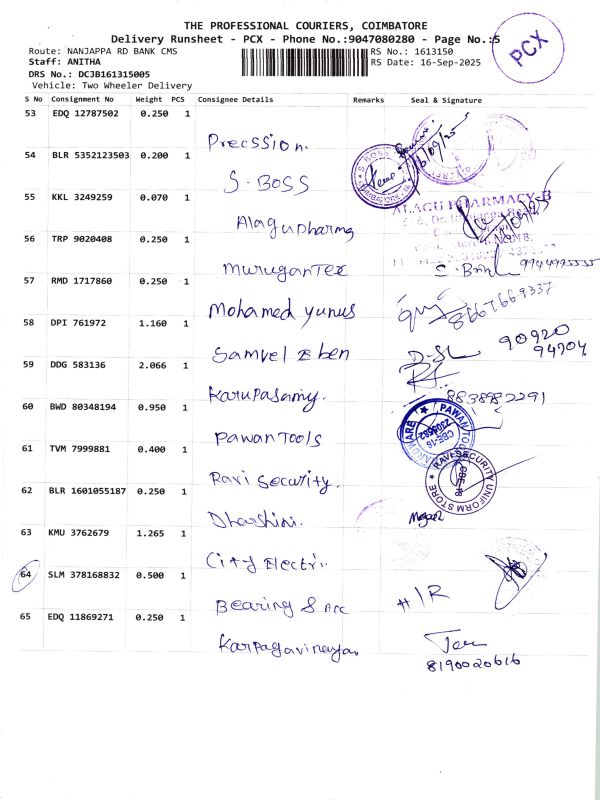 THE PROFESSIONAL COURIERS, COIMBATORE
Delivery Runsheet - PCX - Phone No.:9047080280 - Page No.:5
PCX
Route: NANJAPPA RD BANK CMS
RS No.: 1613150
Staff: ANITHA
RS Date: 16-Sep-2025
DRS No.: DCJB161315005
Vehicle: Two Wheeler Delivery
S No Consignment No Weight PCS Consignee Details Remarks Seal & Signature
53 EDQ 12787502 0.250 1
Precssion.
54 BLR 5352123503 0.200 1
S. BOSS
S. BOSS
55 KKL 3249259 0.070 1
Alagupharma
ALAGU PHARMACY-B
56 TRP 9020408 0.250 1
MuruganTex
9944995535
57 RMD 1717860 0.250 1
Mohamed yunus
8667669337
58 DPI 761972 1.160 1
Samvel Eben
90920
94704
59 DDG 583136 2.066 1
Karupasamy.
8838982291
60 BWD 80348194 0.950 1
Pawan Tools
PAWAN TOOLS
61 TVM 7999881 0.400 1
Ravi Security.
RAVI SECURITY UNIFORM STORE
62 BLR 1601055187 0.250 1
Dharshini.
63 KMU 3762679 1.265 1
City Electri..
64 SLM 378168832 0.500 1
Bearing & Acc
65 EDQ 11869271 0.250 1
Karpagavinaya.
8190020616